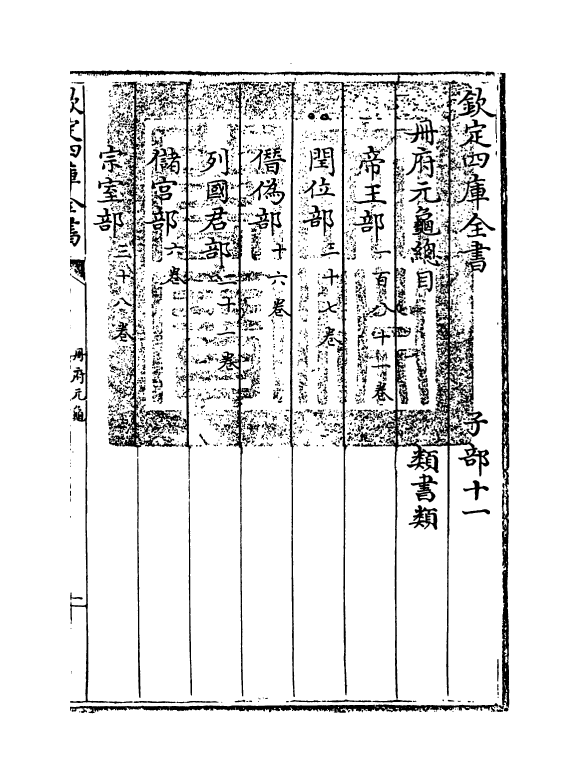 欽定四庫全書 子部十一
冊府元龜總目 類書類
帝王部一百八十一卷
閏位部三十七卷
僭偽部十六卷
列國君部二十二卷
儲宮部六卷
宗室部三十八卷
欽定四庫全書
冊府元龜
一